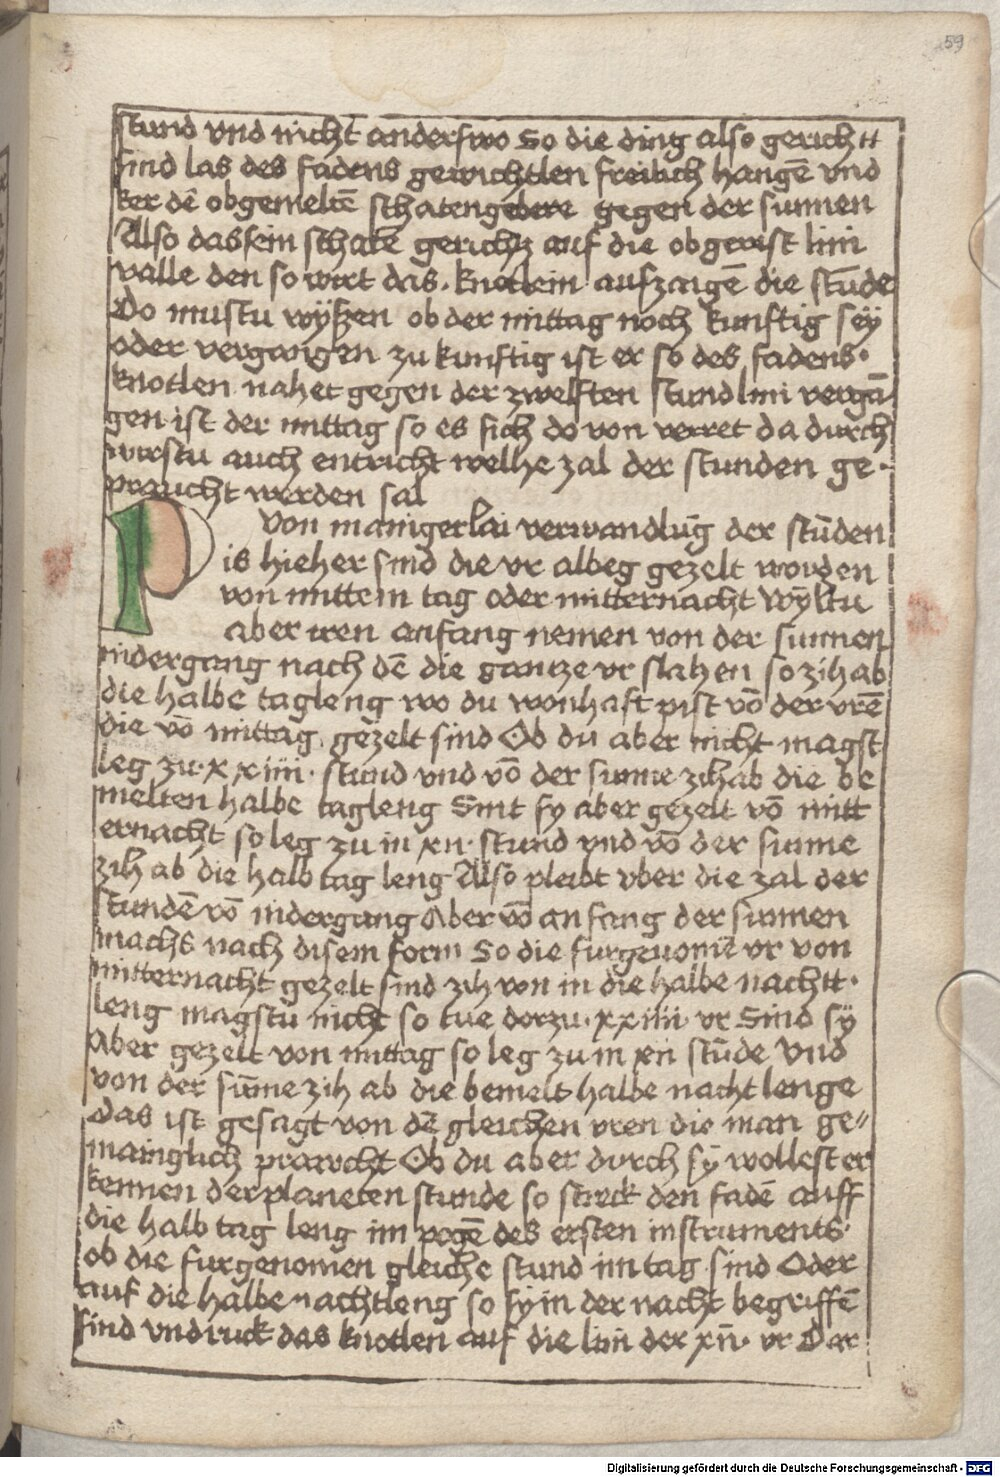 59
stund vnd nicht anderswo So die ding also gerichtt
sind las des fadens gewichtlen freilich hangē vnd
ker dē obgemeltē schatengebere gegen der sunnen
Also das sein schatē gerichz auf die obgerist lini
valle den so wirt das knotlein aufzaigē die stūde
Do mustu wyszen ob der mittag noch kunftig sey
oder vergangen zu kunftig ist er so des fadens
knotlen nahet gegen der zwelften stundlini vergā
gen ist der mittag so es sich do von verret da durch
wirstu auch entricht welhe zal der stunden ge
praucht werden sal
von manigerlai verwandlūg der stūden
P is hieher sind die vr albeg gezelt worden
von mittem tag oder mitternacht Wyltu
aber iren anfang nemen von der sunnen
nidergang nach dē die gantze vr slahen so zih ab
die halbe tagleng wo du wonhaft pist vō der vrē
die vō mittag gezelt sind Ob du aber nicht magst
leg zu · xxiiii · stund vnd vō der sunne zih ab die be
melten halbe tagleng Sint sy aber gezelt vō mitt
ernacht so leg zu in xii · stund vnd vō der sunne
zih ab die halb tag leng Also pleibt vber die zal der
stundē vō nidergang Aber vō anfang der sunnen
machs nach disem form So die furgenomē vr von
mitternacht gezelt sind zih von in die halbe nachtt ·
leng magstu nicht so tue dorzu · xxiiii · vr Sind sy
Aber gezelt von mittag so leg zu in xii stūde Vnd
von der sūme zih ab die bemelt halbe nacht lenge
Das ist gesagt von dē gleichen vren die man ge〃
mainglich prawcht Ob du aber durch sy wollest er
kennen der planeten stunde so streck den fadē auff
die halb tag leng im pogē des ersten instruments ·
ob die furgenomen gleiche stund im tag sind Oder
auf die halbe nachtleng so sy in der nacht begriffē
sind vnd ruck das knotlen auf die lini der xii · vr Dar
Digitalisierung gefördert durch die Deutsche Forschungsgemeinschaft - DFG